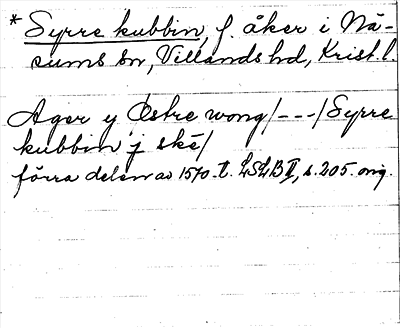 * Syrre kubbin, f. åker i Nä-
sums sn, Villands hd, Krist. l.
Ager y Østre wong/---/Syrre
kubbin j ské/
förra delen av 1570-t. LSLB II, s. 205. orig.